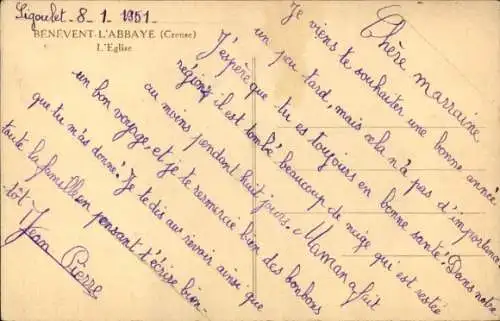 Sigoulet - 8 - 1 - 1951
BÉNÉVENT-L'ABBAYE (Creuse)
L'Eglise
Chère marraine
Je viens te souhaiter une bonne année
un peu tard, mais cela n'a pas d'importance.
J'espère que tu es toujours en bonne santé! Dans notre
région, il est tombé beaucoup de neige qui est restée
au moins pendant huit jours. Maman a fait
un bon voyage, et je te remercie bien des bonbons
que tu m'as donné! Je te dis au revoir ainsi que
toute la famille en pensant t'écrire bien-
tôt
Jean Pierre